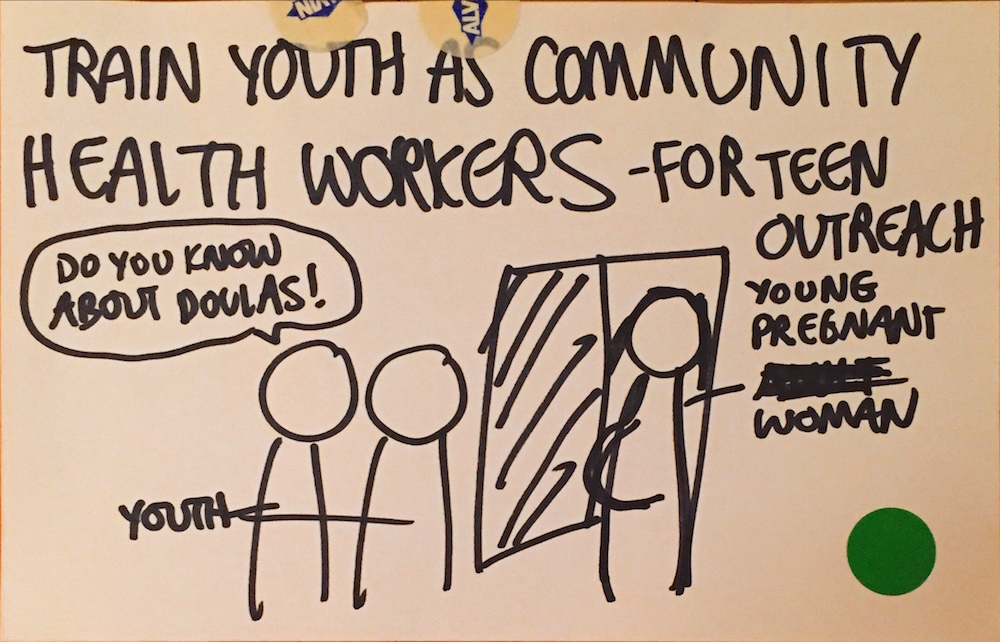 TRAIN YOUTH AS COMMUNITY
HEALTH WORKERS - FOR TEEN
OUTREACH
DO YOU KNOW
ABOUT DOULAS!
YOUNG
PREGNANT
WOMAN
YOUTH